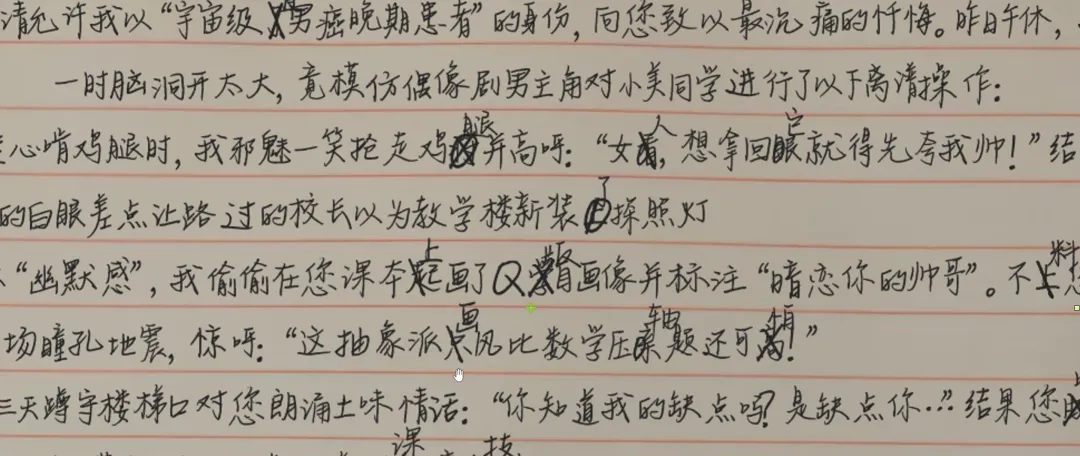 请允许我以“宇宙级男癌晚期患者”的身份,向您致以最沉痛的忏悔。昨日午休,
一时脑洞开太大,竟模仿偶像剧男主角对小美同学进行了以下离谱操作:
心啃鸡腿时,我邪魅一笑抢走鸡腿并高呼:“女人,想拿回它就得先夸我帅!”结
的白眼差点让路过的校长以为教学楼新装了探照灯
“幽默感”,我偷偷在您课本上画了Q版画像并标注“暗恋你的帅哥”。不料
场瞳孔地震,惊呼:“这抽象派画风比数学压轴题还可怕!”
三天蹲守楼梯口对您朗诵土味情话:“你知道我的缺点吗?是缺点你…”结果您
课 技